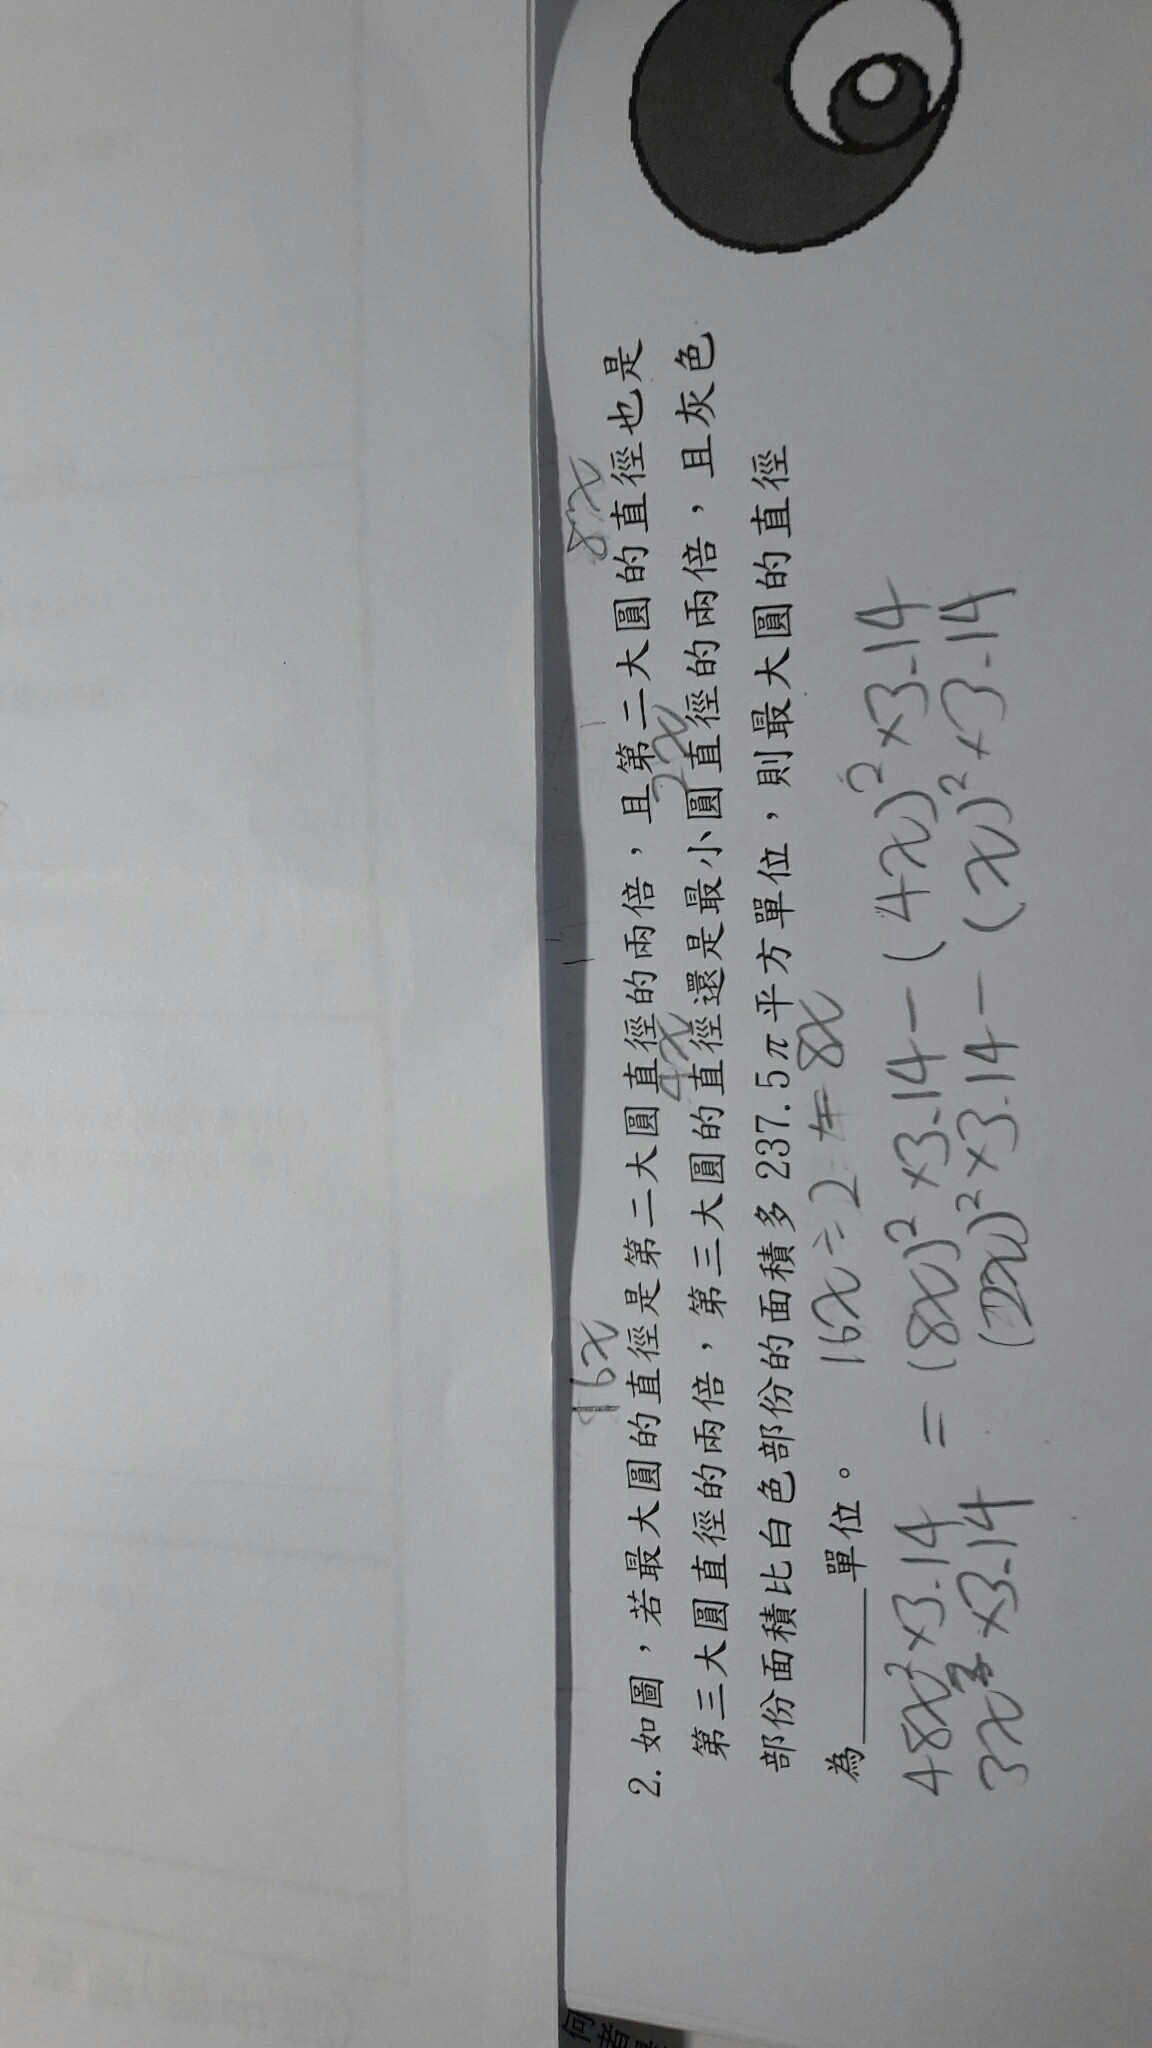 16x 8x
2. 如圖，若最大圓的直徑是第二大圓直徑的兩倍，且第二大圓的直徑也是
4x 2x
第三大圓直徑的兩倍，第三大圓的直徑還是最小圓直徑的兩倍，且灰色
部份面積比白色部份的面積多 237.5π平方單位，則最大圓的直徑
為______單位。 16x÷2=8x
48x²×3.14 = (8x)²×3.14-(4x)²×3.14
3x²×3.14 (2x)²×3.14-(x)²×3.14
何